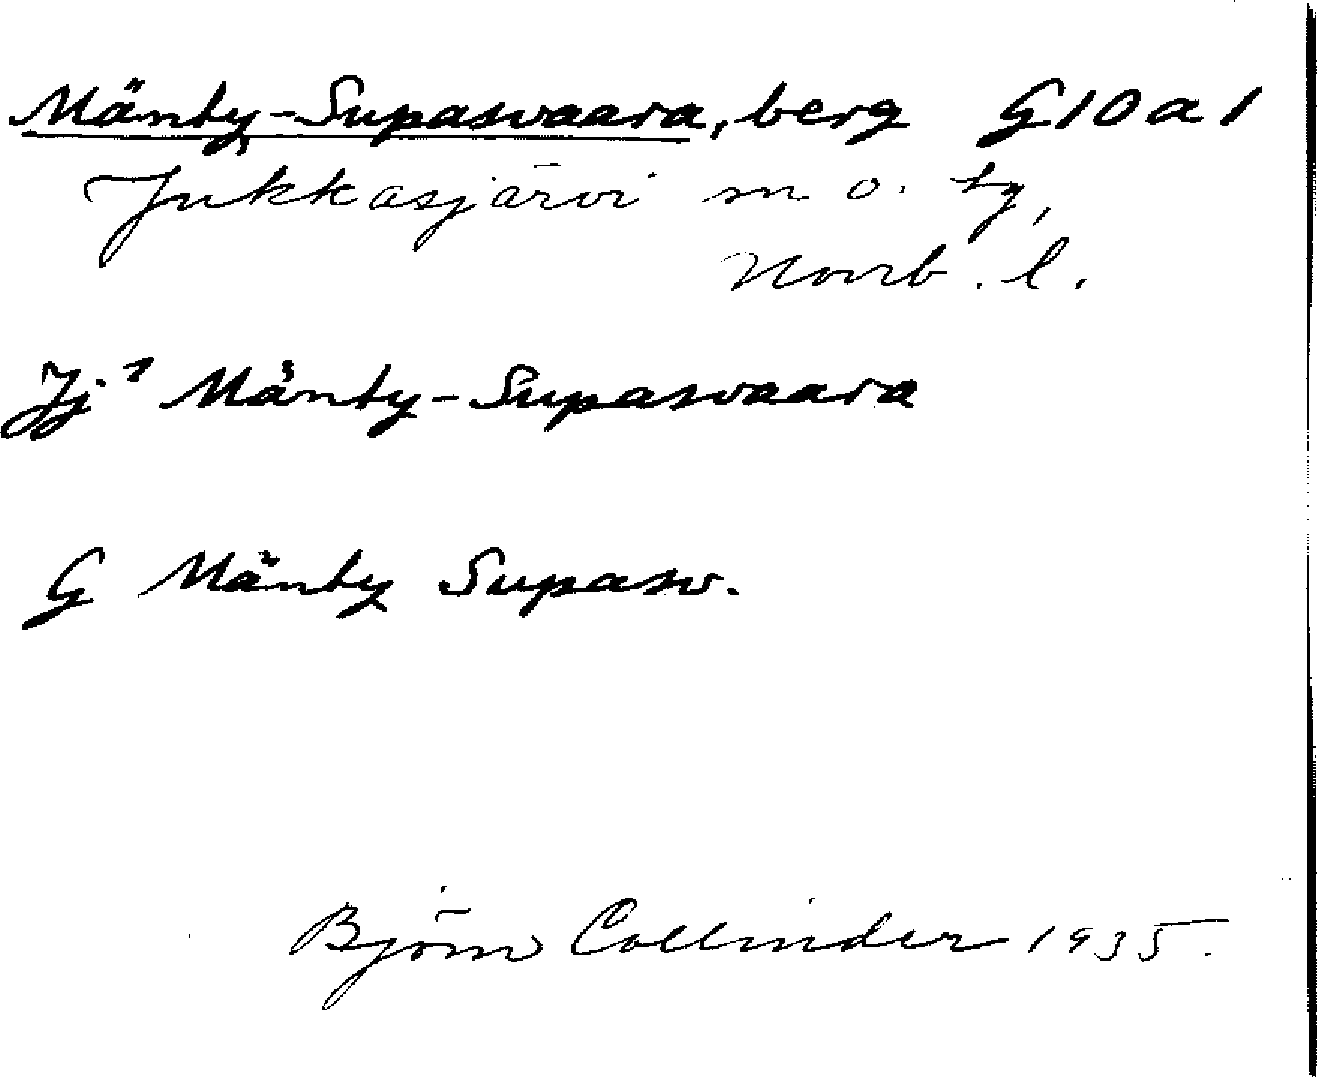 Mänty-Supasvaara, berg G10a1
Jukkasjärvi m o. ty,
Norrb. l.
Jj¹ Mänty-Supasvaara
G Mänty Supasv.
Björn Collinder 1935.